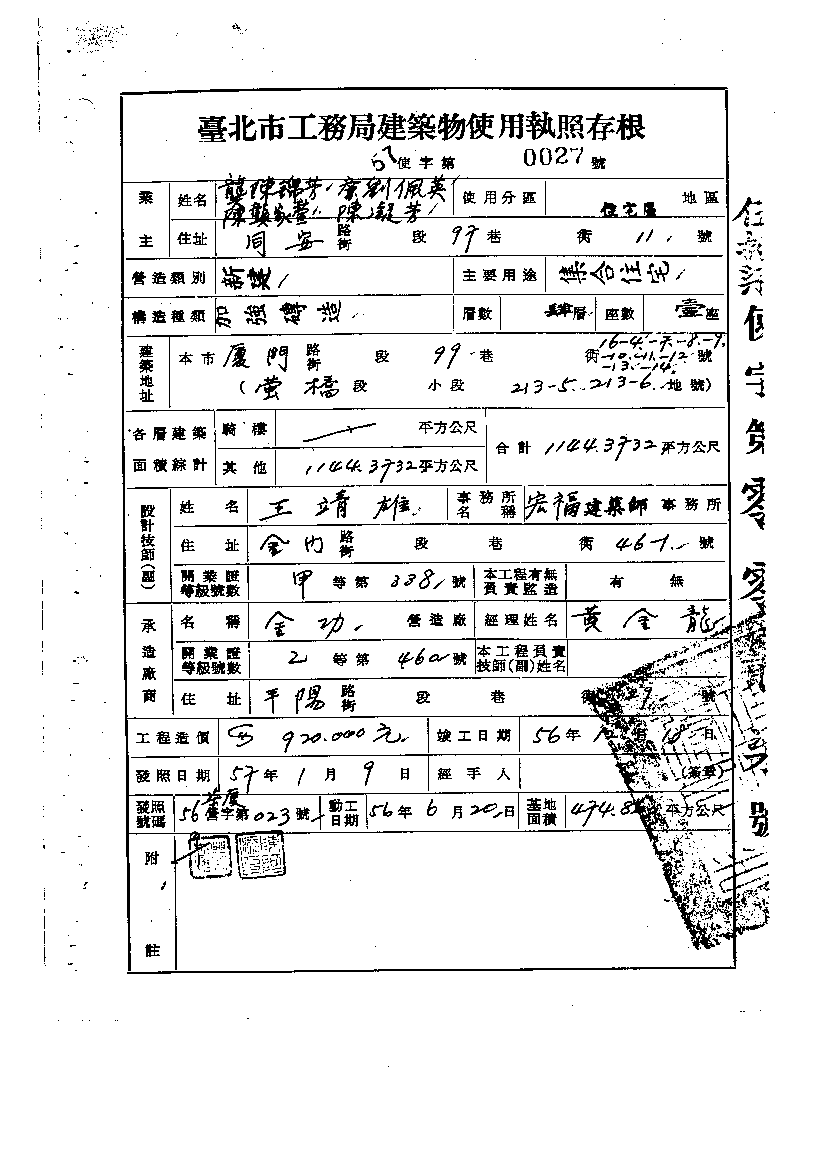 臺北市工務局建築物使用執照存根
57使字第 0027 號
業主 姓名 龍陳錦芳 劉佩英 陳 陳凝芳 使用分區 住宅區 地區
住址 同安 路街 段 97巷 衖 11 號
營造類別 新建 主要用途 集合住宅
構造種類 加強磚造 層數 層 座數 壹座
建築地址 本市 廈門 路街 段 99巷 衖 16-4.-7.-8.-9.-10.-11.-12.-13.-14. 號
(螢橋段 小段 213-5. 213-6. 地號)
各層建築面積綜計 騎樓 平方公尺 合計 1144.3732平方公尺
其他 1144.3732平方公尺
設計技師(副) 姓名 王靖雄 事務所名稱 宏福建築師事務所
住址 路街 段 巷 衖 46-1 號
開業證等級號數 甲等第 338 號 本工程有無負責監造 有 無
承造廠商 名稱 金功 營造廠 經理姓名 黃金龍
開業證等級號數 乙等第 460 號 本工程負責技師(副)姓名
住址 平陽 路街 段 巷 號
工程造價 920.000元 竣工日期 56年 月 18日
發照日期 57年1月9日 經手人 (簽章)
發照號碼 56 字第023號 動工日期 56年6月20日 基地面積 474.8 平方公尺
附註
使字第零零 號